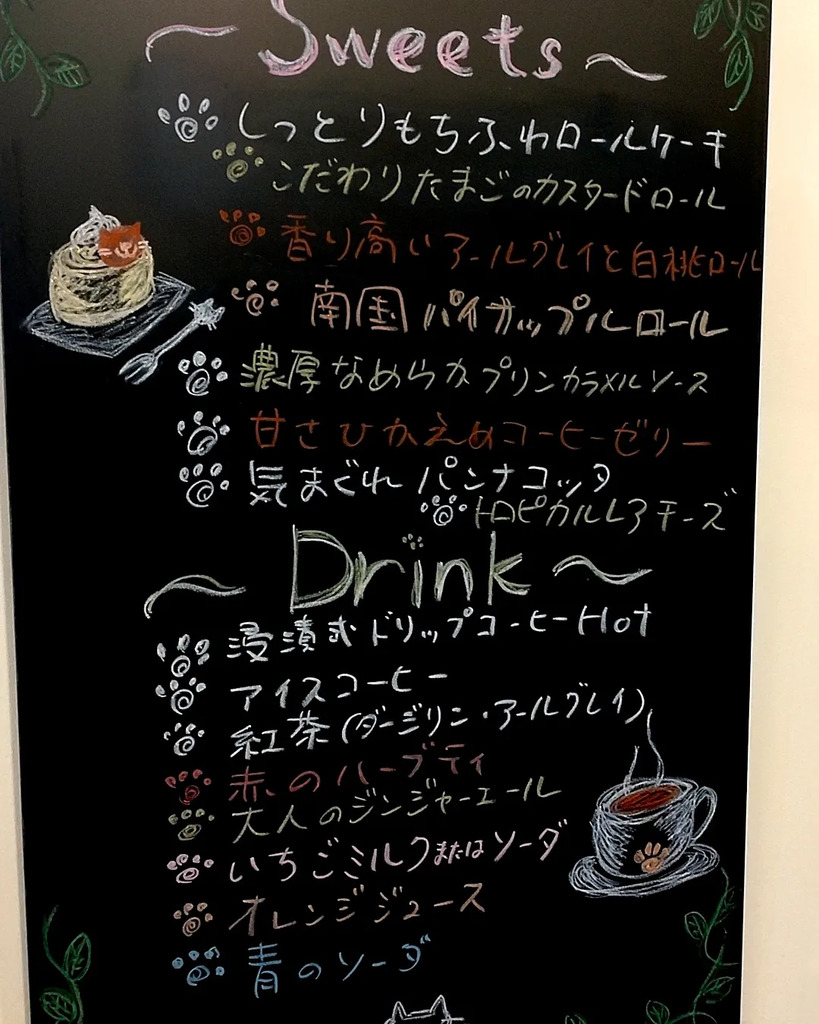 ~ Sweets ~
しっとりもちふわロールケーキ
こだわりたまごのカスタードロール
香り高いアールグレイと白桃ロール
南国パイナップルロール
濃厚なめらかプリンカラメルソース
甘さひかえめコーヒーゼリー
気まぐれパンナコッタ
トロピカルレアチーズ
~ Drink ~
浸漬式ドリップコーヒーHot
アイスコーヒー
紅茶(ダージリン・アールグレイ)
赤のハーブティ
大人のジンジャーエール
いちごミルクまたはソーダ
オレンジジュース
青のソーダ